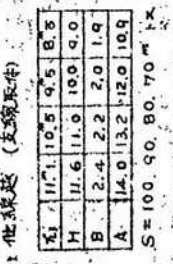 他線越 (支線取付)
11.1 10.5 9.5
H 11.6 11.0 10.0 9.0
B 2.4 2.2 2.0 1.9
A 14.0 13.2 12.0 10.9
S=100. 90. 80. 70 m トス